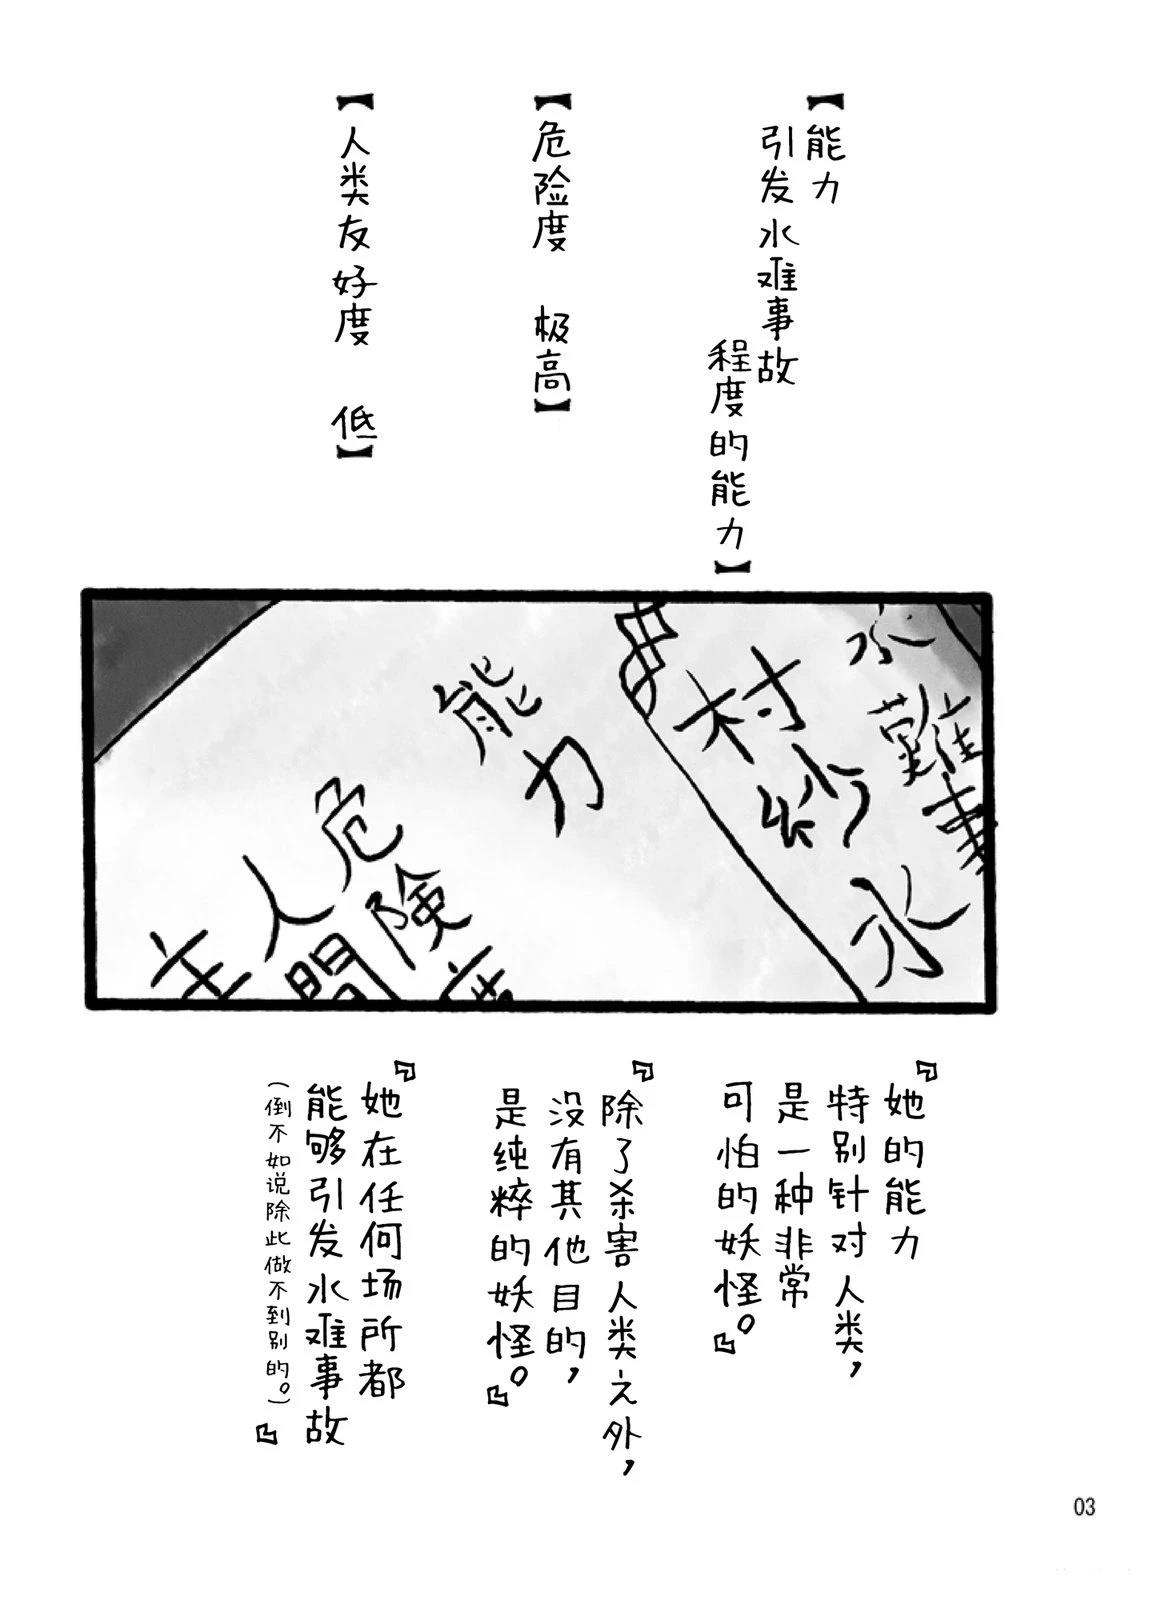 【能力
引发水难事故
程度的能力】
【危险度 极高】
【人类友好度 低】
水難事
村紗水
能力
危険度
人間
主
『她的能力
特别针对人类，
是一种非常
可怕的妖怪。』
『除了杀害人类之外，
没有其他目的，
是纯粹的妖怪。』
『她在任何场所都
能够引发水难事故
（倒不如说除此做不到别的。）』
03